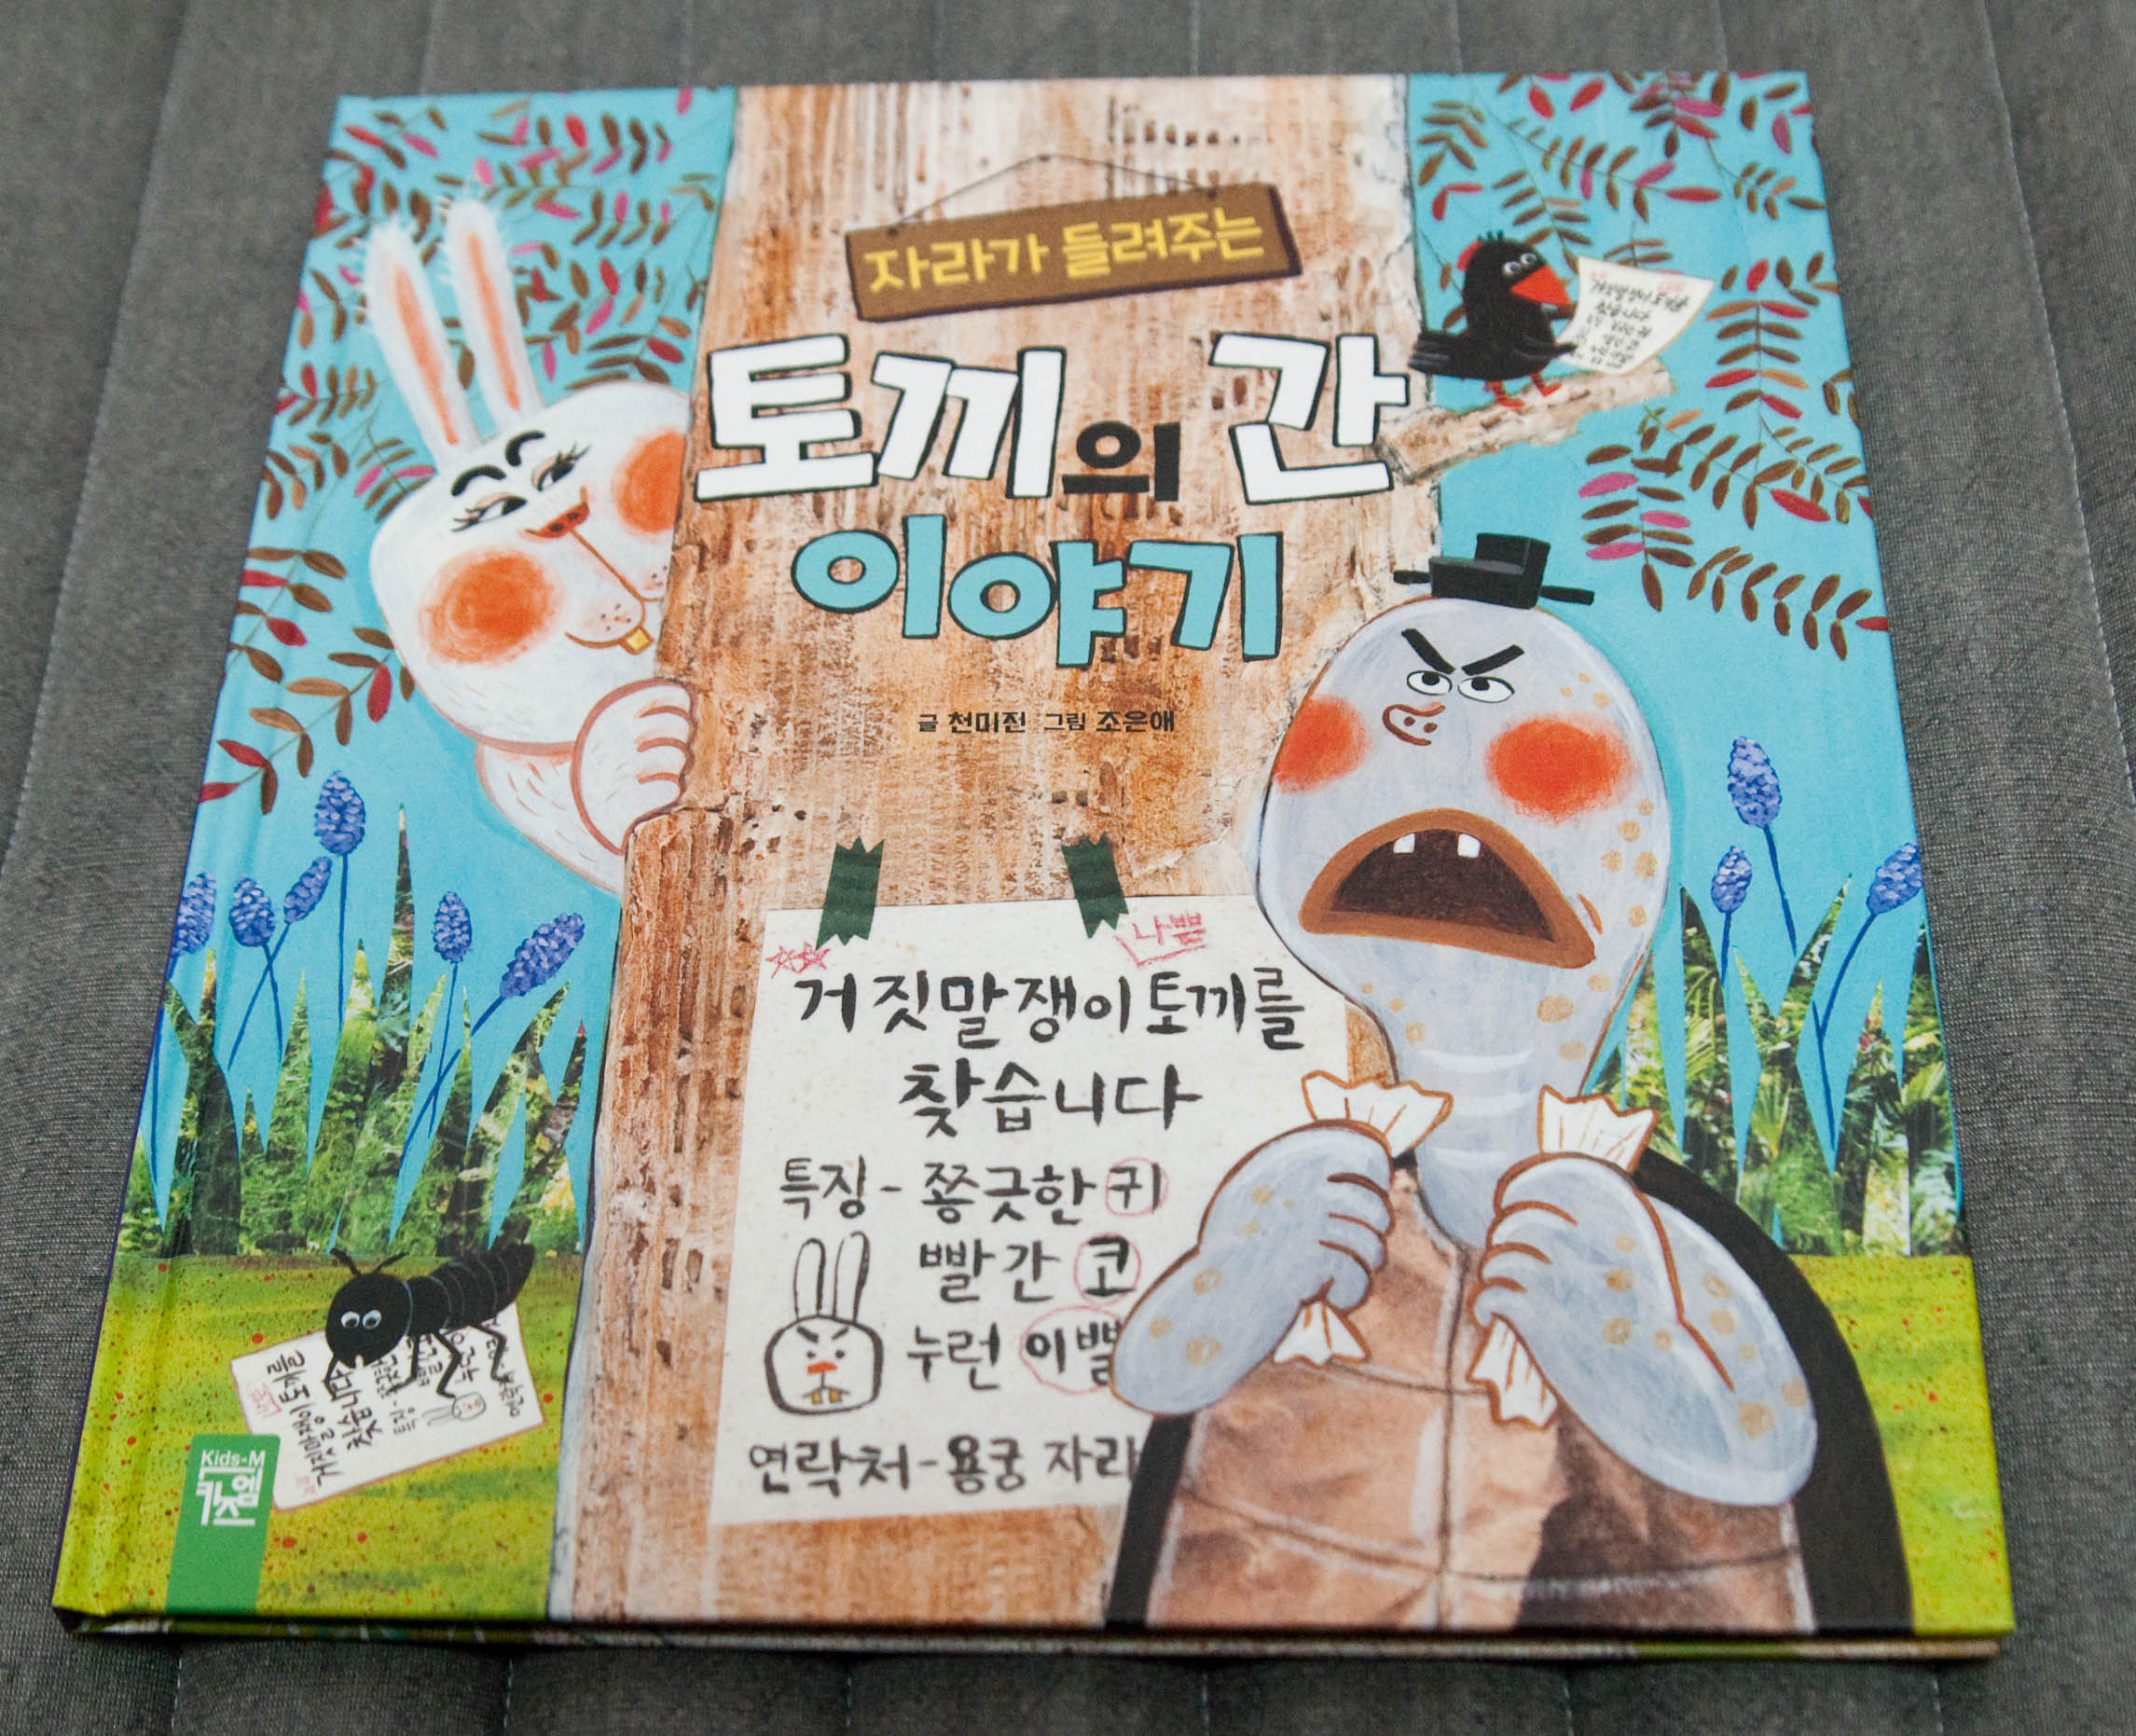 자라가 들려주는
토끼의 간
이야기
글 천미진 그림 조은애
나쁜
거짓말쟁이 토끼를
찾습니다
특징 - 쫑긋한 귀
빨간 코
누런 이빨
연락처 - 용궁 자라
Kids-M
키즈엠